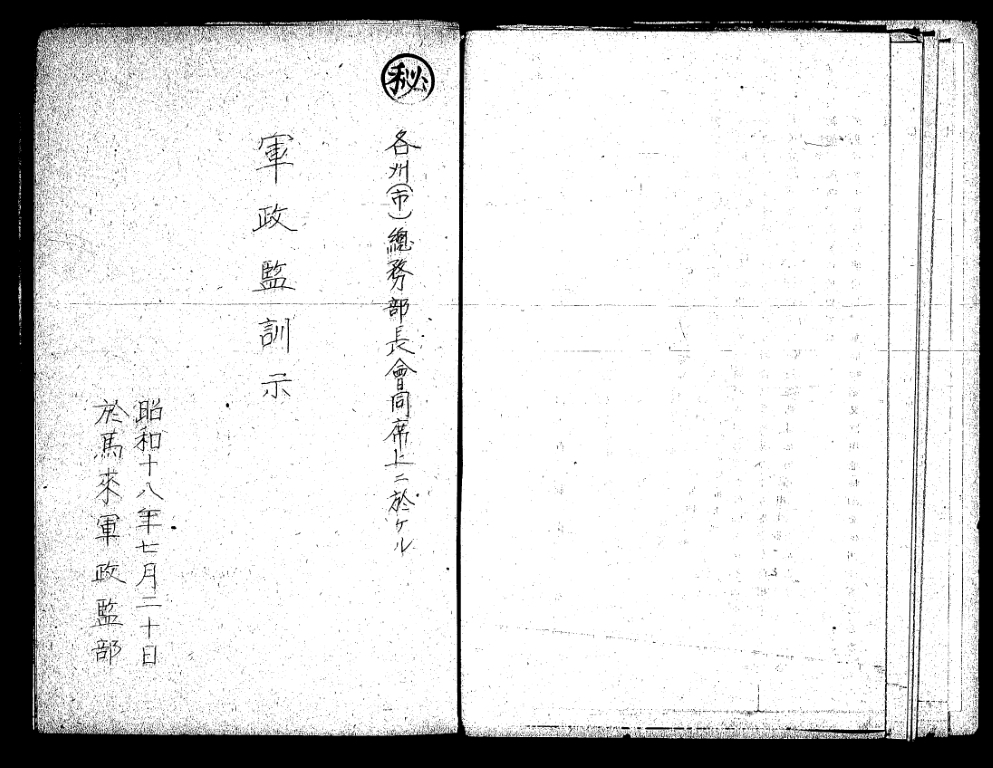 秘
各州(市)總務部長會同席上ニ於ケル
軍政監訓示
昭和十八年七月二十日
於馬來軍政監部